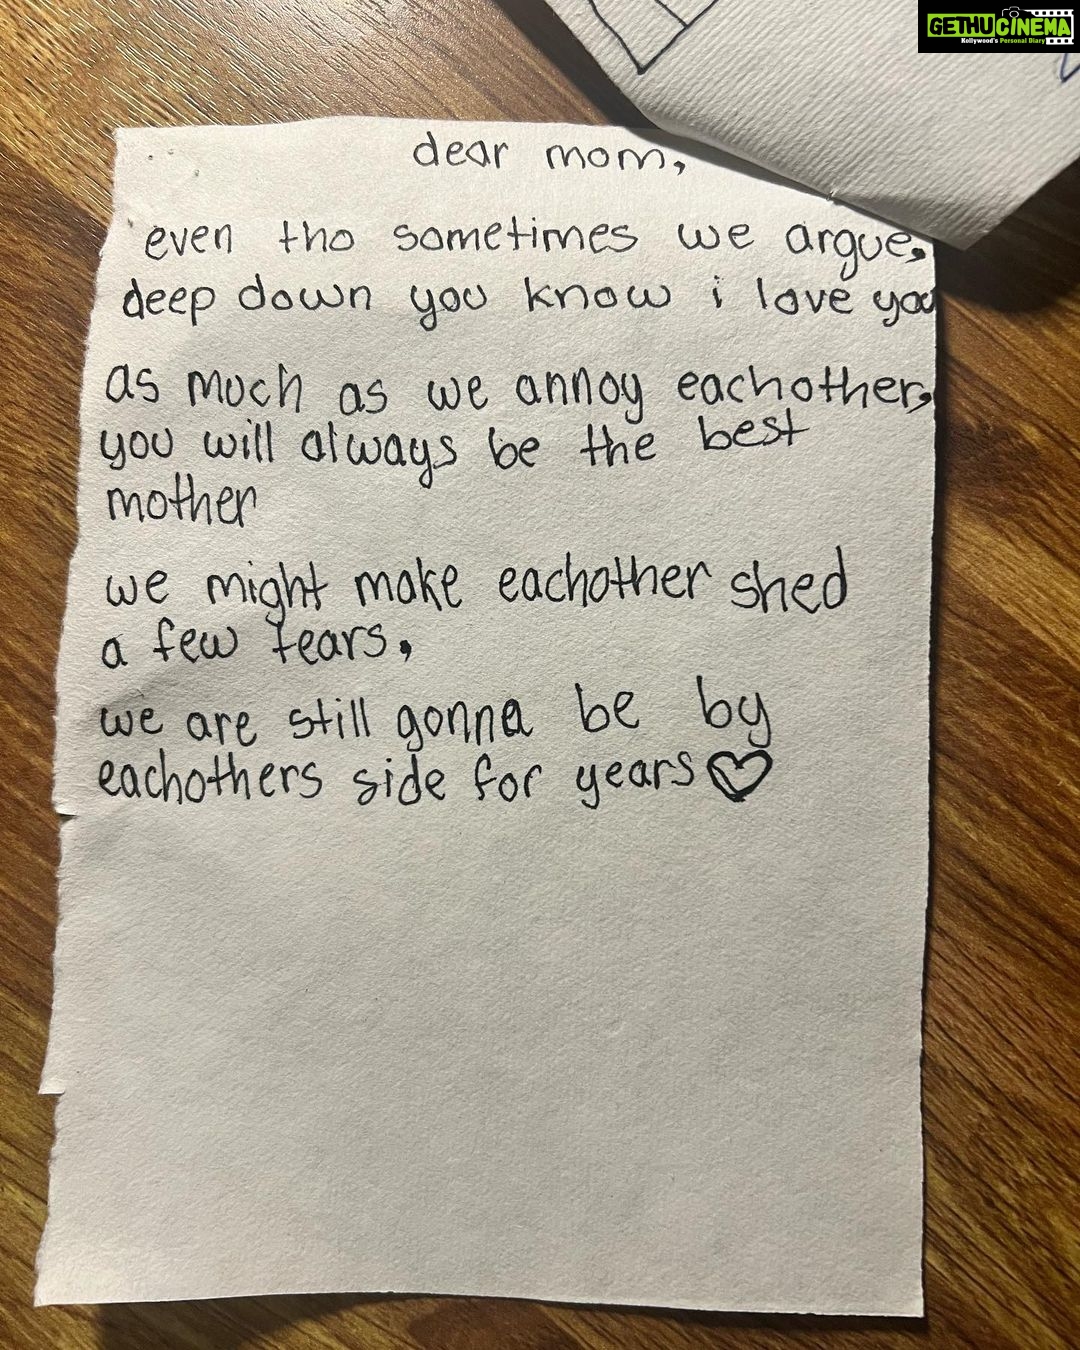 GETHU CINEMA
Kollywood's Personal Diary
dear mom,
even tho sometimes we argue,
deep down you know i love you
as much as we annoy eachother,
you will always be the best
mother
we might make eachother shed
a few tears,
we are still gonna be by
eachothers side for years♡